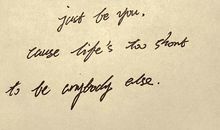 just be you.
cause life's too short
to be anybody else.